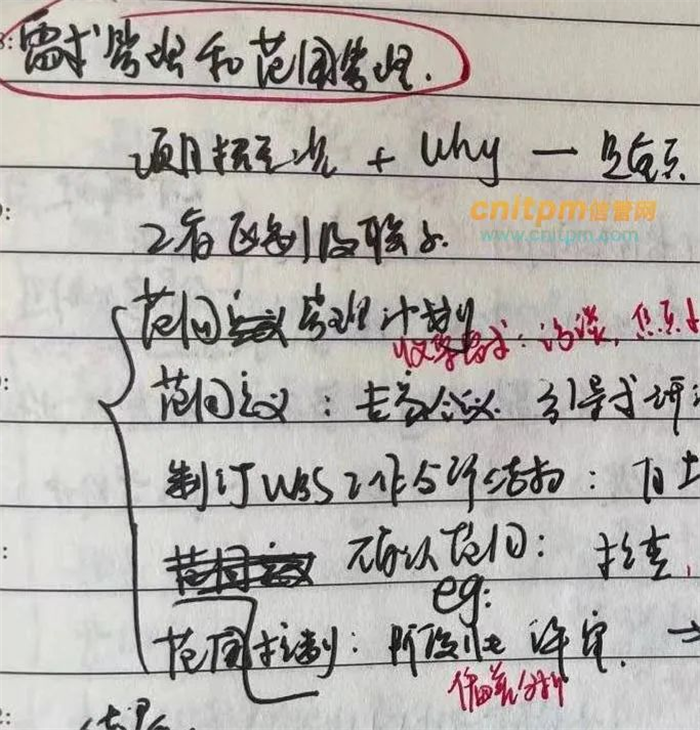 需求管理和范围管理.
项目概况 + Why 一
cnitpm信管网
www.cnitpm.com
二者区别及联系.
范围管理计划
收集需求: 访谈, 焦点
范围定义: 专家会议. 引导式研
制订WBS工作分解结构: 自上
确认范围: 检查,
eg:
范围控制: 阶段性 评审. →
偏差分析